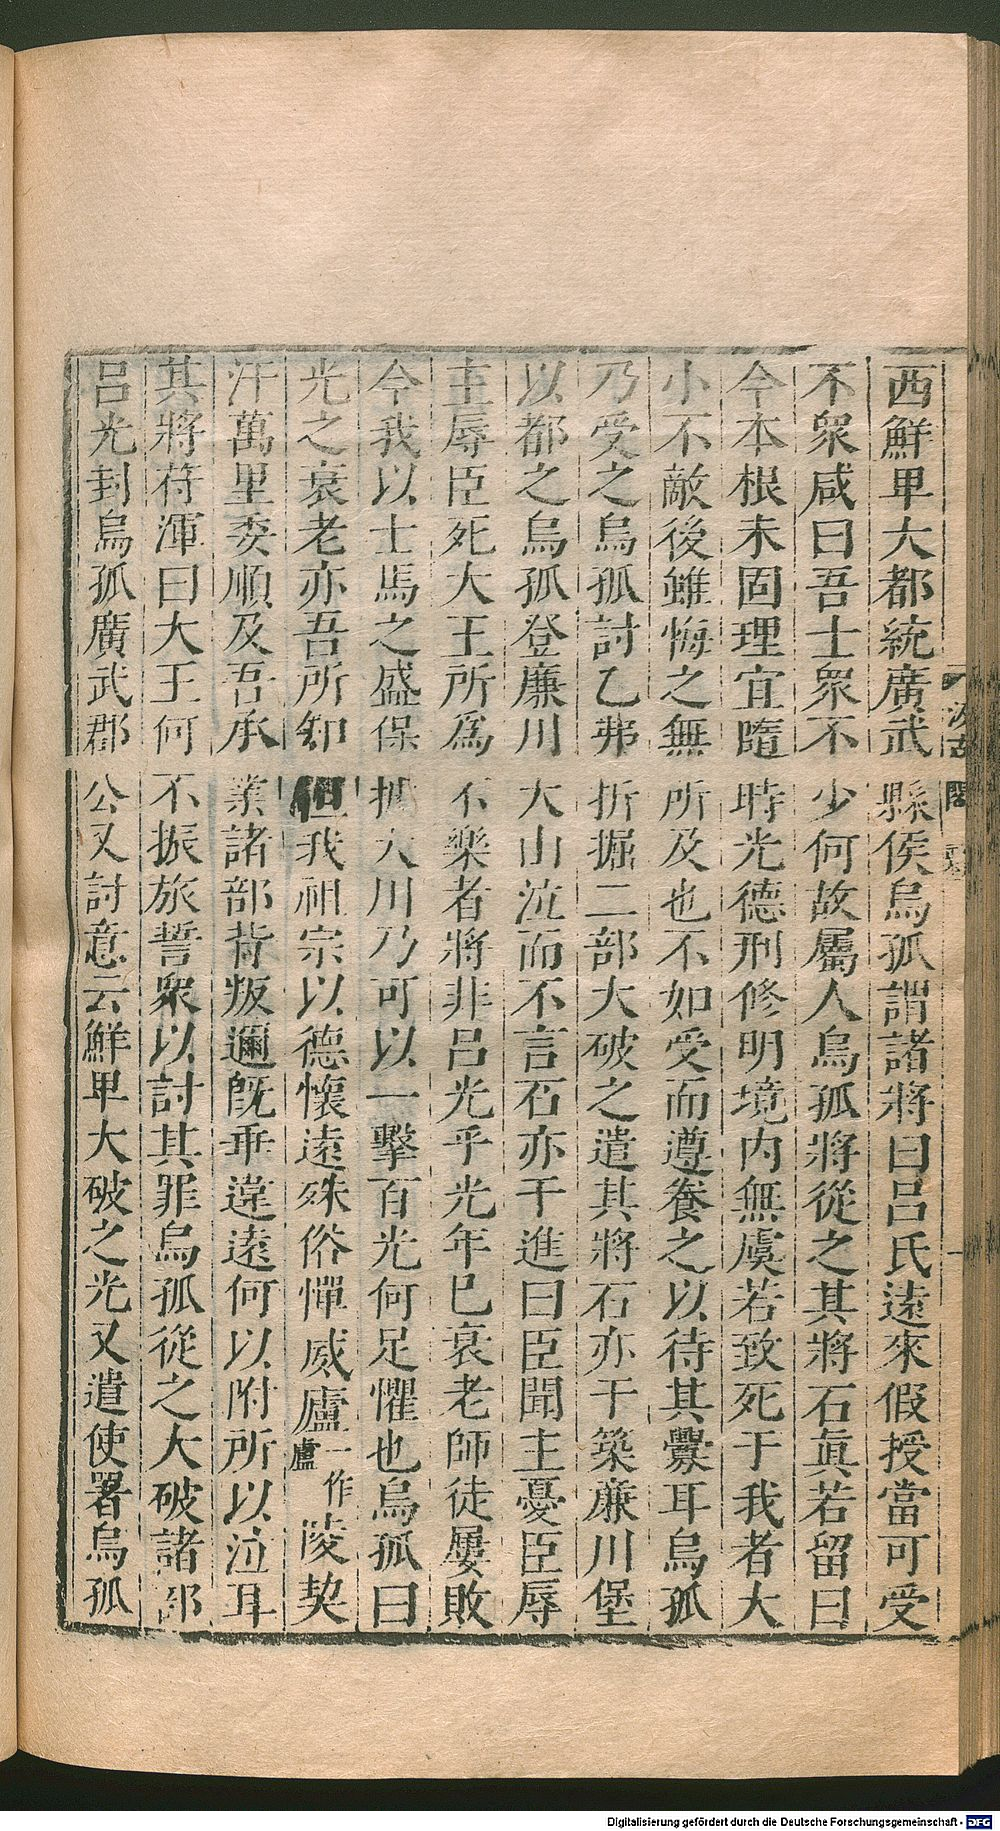 西鮮卑大都統廣武縣侯烏孤謂諸將曰呂氏遠來假授當可受
不眾咸曰吾士眾不少何故屬人烏孤將從之其將石眞若留曰
今本根未固理宜隨時光德刑修明境內無虞若致死于我者大
小不敵後雖悔之無所及也不如受而遵養之以待其釁耳烏孤
乃受之烏孤討乙弗折掘二部大破之遣其將石亦干築廉川堡
以都之烏孤登廉川大山泣而不言石亦干進曰臣聞主憂臣辱
主辱臣死大王所爲不樂者將非呂光乎光年已衰老師徒屢敗
今我以士馬之盛保據大川乃可以一擊百光何足懼也烏孤曰
光之衰老亦吾所知但我祖宗以德懷遠殊俗憚威廬一作盧陵契
汗萬里委順及吾承業諸部背叛邇旣乖違遠何以附所以泣耳
其將苻渾曰大王何不振旅誓眾以討其罪烏孤從之大破諸部
呂光封烏孤廣武郡公又討意云鮮卑大破之光又遣使署烏孤
Digitalisierung gefördert durch die Deutsche Forschungsgemeinschaft - DFG